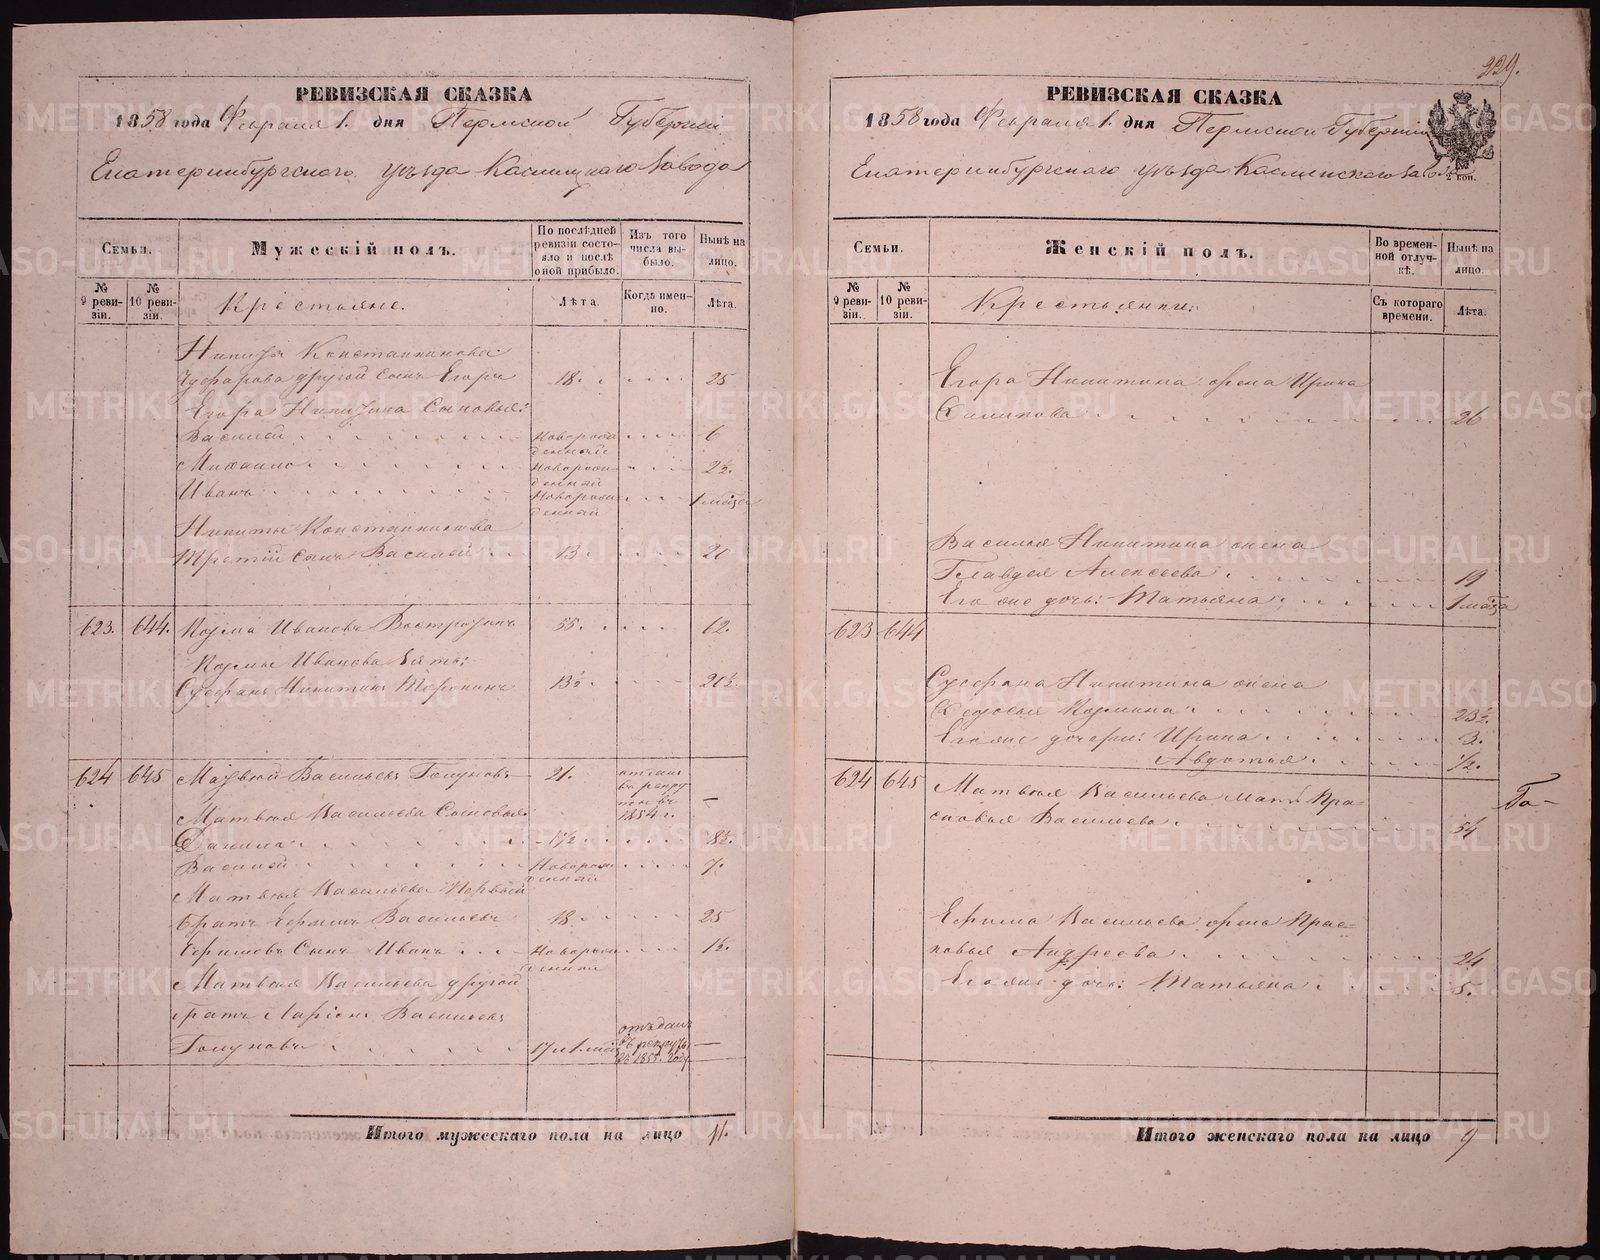 РЕВИЗСКАЯ СКАЗКА
1858 года Февраля 1. дня Пермской Губерніи
Екатеринбургскаго уѣзда Каслинскаго Завода
Семьи.
Мужескій полъ.
По послѣдней ревизіи состояло и послѣ оной прибыло.
Изъ того числа выбыло.
Нынѣ на лицо.
№ 9 ревизіи.
№ 10 ревизіи.
Крестьяне.
Лѣта.
Когда именно.
Лѣта.
Никиты Константинова
другой сынъ Егоръ 18. 25
Егора Никитина Сыновья:
Василей Новорожденный 6
Михайло Новорожденный 2½.
Иванъ Новорожденный 1 мѣсяц
Никиты Константинова
третій сынъ Василей 13. 20
623. 644. Козма Ивановъ Востротинъ 55. 62.
Козмы Иванова Зять:
Никитинъ Торопинъ 13½. 21½.
624 645 Матвѣй Васильевъ Голуновъ 21. отданъ въ рекруты въ 1854 г. —
Матвѣя Васильева Сыновья:
Данило 1½ 8½.
Василей Новорожденный 7.
Матвѣя Васильева Первый
братъ Ефимъ Васильевъ 18. 25
Ефимовъ Сынъ Иванъ Новорожденный 1½.
Матвѣя Васильева другой
братъ Ларіонъ Васильевъ
Голуновъ 17 л 1 мѣс отъданъ въ рекруты въ 1855. году —
Итого мужескаго пола на лицо 11.
229.
РЕВИЗСКАЯ СКАЗКА
1858 года Февраля 1. дня Пермской Губерніи
Екатеринбургскаго уѣзда Каслинскаго Завода
2 коп.
Семьи.
Женскій полъ.
Во временной отлучкѣ.
Нынѣ на лицо.
№ 9 ревизіи.
№ 10 ревизіи.
Крестьянки.
Съ котораго времени.
Лѣта.
Егора Никитина жена Ирина
Филипова 26
Василья Никитина жена
Главдея Алексѣева 19
Его же дочь: Татьяна 1 мѣсяца
623 644
Никитина жена
Федосья Козмина 23½.
Его же дочери: Ирина 3.
Авдотья ½.
624 645 Матвѣя Васильева мать Прасковья Васильева 54
Ефима Васильева жена Прасковья Андреева 24
Его же дочь: Татьяна 5.
Итого женскаго пола на лицо 9
METRIKI.GASO-URAL.RU